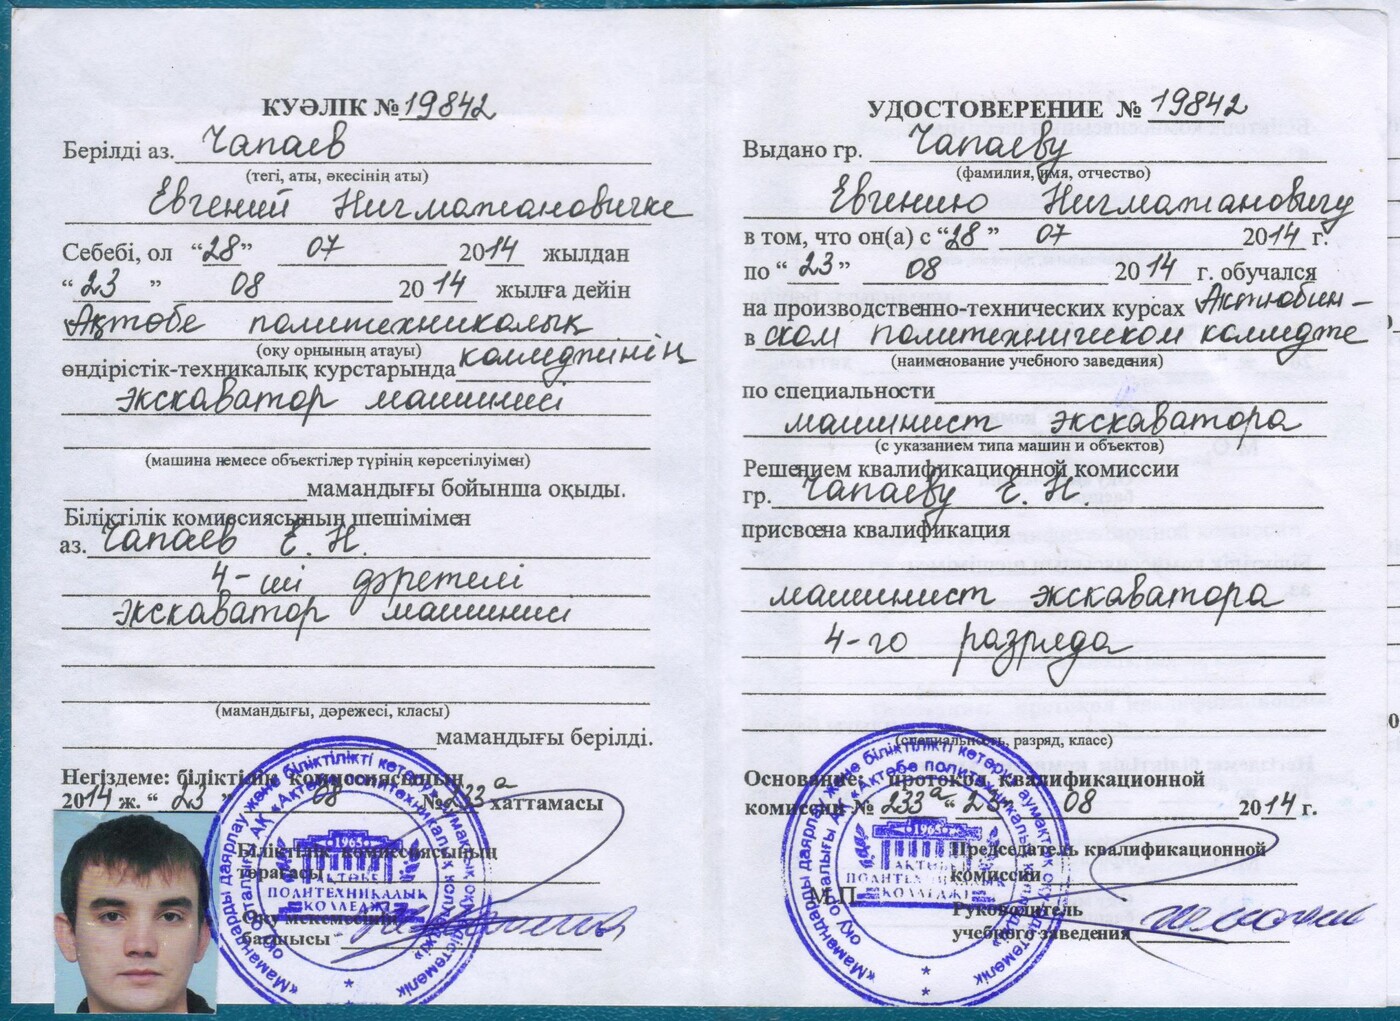 КУӘЛІК № 19842
Берілді аз. Чапаев
(тегі, аты, әкесінің аты)
Евгений Нигматановичке
Себебі, ол “28” 07 2014 жылдан
“23” 08 2014 жылға дейін
Ақтөбе политехникалық
(оқу орнының атауы)
өндірістік-техникалық курстарында колледжінің
экскаватор машинисі
(машина немесе объектілер түрінің көрсетілуімен)
мамандығы бойынша оқыды.
Біліктілік комиссиясының шешімімен
аз. Чапаев Е. Н.
4-ші дәрежелі
экскаватор машинисі
(мамандығы, дәрежесі, класы)
мамандығы берілді.
Негіздеме: біліктілік комиссиясының
2014 ж. “23” 08 № 233а хаттамасы
Біліктілік комиссиясының
төрағасы
Оқу мекемесінің
басшысы
1965
АҚТӨБЕ
ПОЛИТЕХНИКАЛЫҚ
КОЛЛЕДЖІ
УДОСТОВЕРЕНИЕ № 19842
Выдано гр. Чапаеву
(фамилия, имя, отчество)
Евгению Нигматановичу
в том, что он(а) с “28” 07 2014 г.
по “23” 08 2014 г. обучался
на производственно-технических курсах Актюбин-
в ском политехническом колледже
(наименование учебного заведения)
по специальности
машинист экскаватора
(с указанием типа машин и объектов)
Решением квалификационной комиссии
гр. Чапаеву Е. Н.
присвоена квалификация
машинист экскаватора
4-го разряда
(специальность, разряд, класс)
Основание: протокол квалификационной
комиссии № 233а “23” 08 2014 г.
Председатель квалификационной
комиссии
М.П.
Руководитель
учебного заведения
1965
АҚТӨБЕ
ПОЛИТЕХНИКАЛЫҚ
КОЛЛЕДЖІ